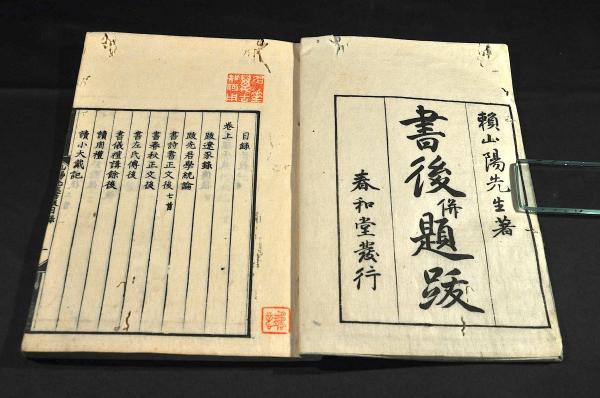 賴山陽先生著
書後併題跋
春和堂發行
目録
卷上
跋録後
跋先君學統論
書詩書正文後 七首
書春秋正文後
書左氏傳後
書儀禮講餘後
讀周禮
讀小大戴記